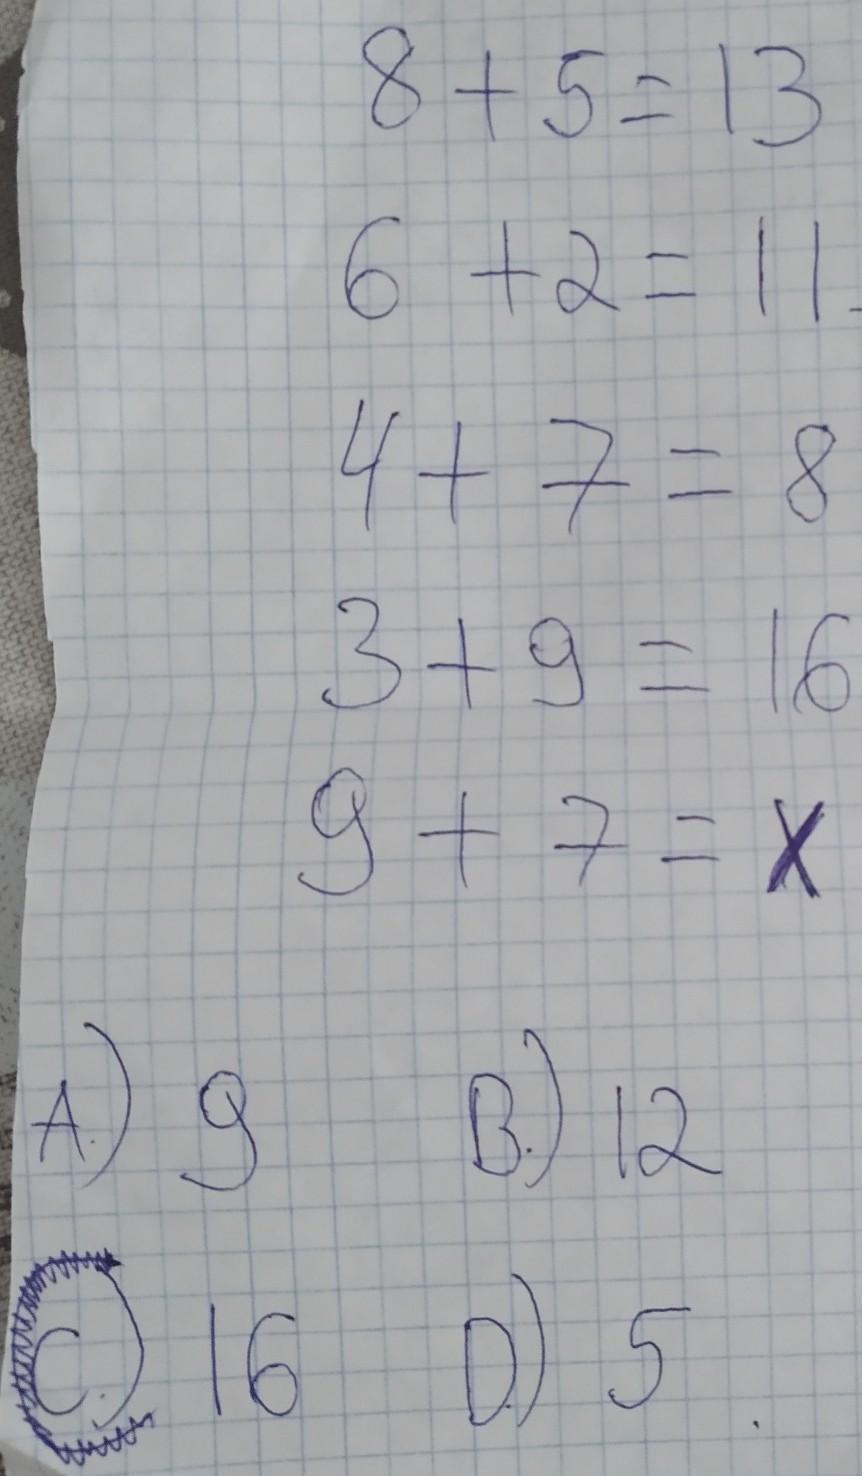 8 + 5 = 13
6 + 2 = 11
4 + 7 = 8
3 + 9 = 16
9 + 7 = X
A.) 9 B.) 12
C.) 16 D.) 5